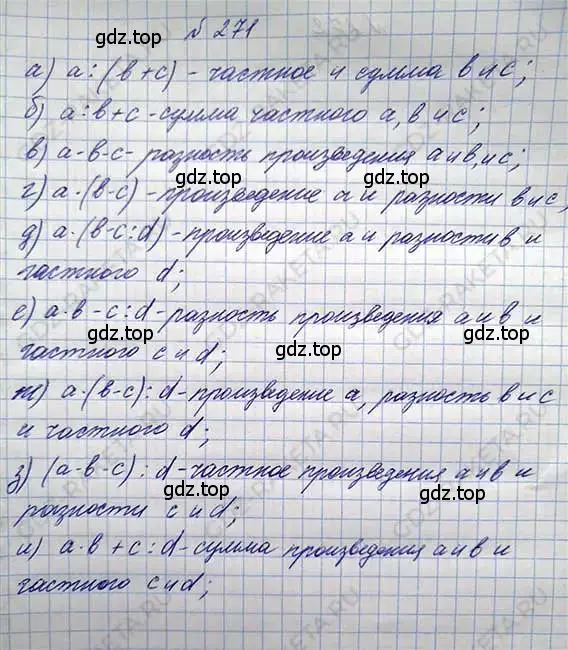 № 271
gdz.top
а) а : (в + с) - частное и сумма в и с;
б) а : в + с - сумма частного а, в и с;
gdz.top
в) а - в - с - разность произведения а и в, и с;
г) а · (в - с) - произведение а и разности в и с,
gdz.top
д) а · (в - с : d) - произведение а и разности в и
частного d;
gdz.top
е) а · в - с : d - разность произведения а и в и
gdz.top
частного с и d;
ж) а · (в - с) : d - произведение а, разность в и с
gdz.top
и частного d;
з) (а - в - с) : d - частное произведения а и в и
gdz.top
разности с и d;
и) а · в + с : d - сумма произведения а и в и
gdz.top
частного с и d;